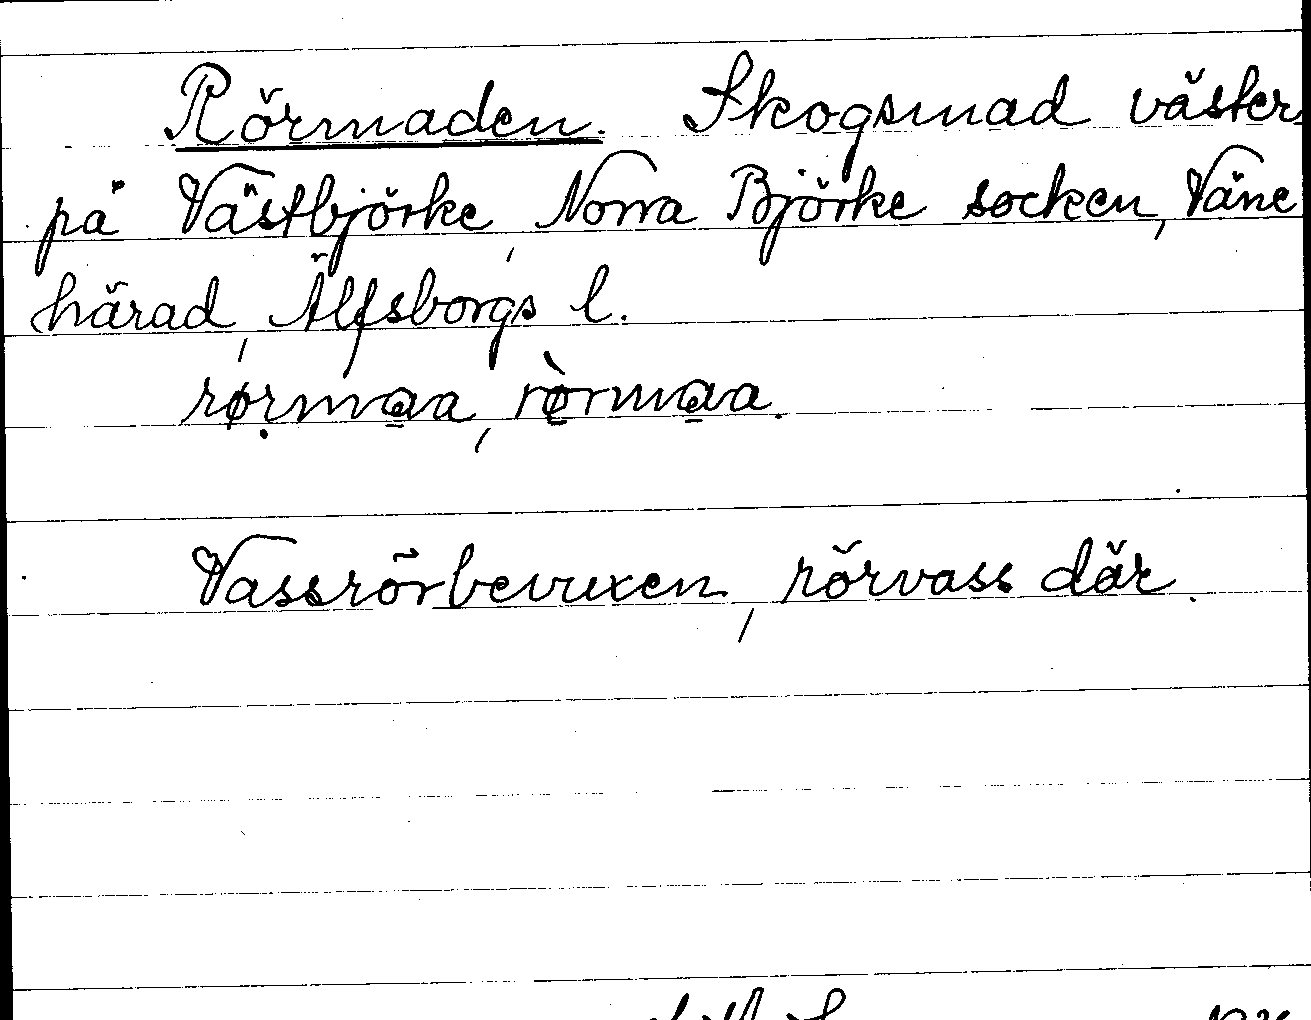 Rörmaden. Skogsmad väster
på Västbjörke, Norra Björke socken, Väne
härad, Älfsborgs l.
rørmaa, rørmaa.
Vassrörbevuxen, rörvass där.